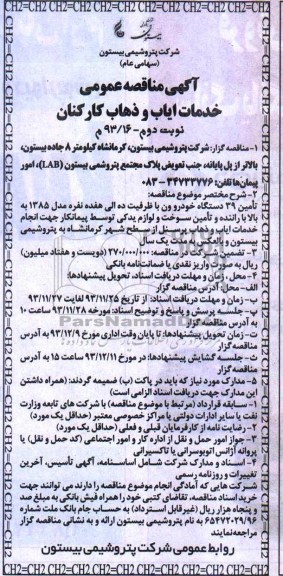 CH2=CH2 CH2=CH2 CH2=CH2 CH2=CH2 CH2=CH2
شرکت پتروشیمی بیستون
(سهامی عام)
آگهی مناقصه عمومی
خدمات ایاب و ذهاب کارکنان
نوبت دوم - ۹۳/۱۶ م
۱- مناقصه گزار: شرکت پتروشیمی بیستون، کرمانشاه کیلومتر ۸ جاده بیستون،
بالاتر از پل پایانه، جنب تعویض پلاک مجتمع پتروشمی بیستون (LAB)، امور
پیمان‌ها تلفن: ۳۴۷۳۳۷۷۶ - ۰۸۳
۲- شرح مختصر موضوع مناقصه:
تأمین ۳۹ دستگاه خودرو ون با ظرفیت ده الی هفده نفره مدل ۱۳۸۵ به
بالا با راننده و تأمین سوخت و لوازم یدکی توسط پیمانکار جهت انجام
خدمات ایاب و ذهاب پرسنل از سطح شهر کرمانشاه به پتروشیمی
بیستون و بالعکس به مدت یک سال
۳- تضمین شرکت در مناقصه: ۲۷۰/۰۰۰/۰۰۰ (دویست و هفتاد میلیون)
ریال به صورت واریز نقدی یا ضمانت‌نامه بانکی
۴- محل، زمان و مهلت دریافت اسناد، تحویل پیشنهادها:
الف- محل: آدرس مناقصه گزار
ب- زمان و مهلت دریافت اسناد: از تاریخ ۹۳/۱۱/۲۵ لغایت ۹۳/۱۱/۲۷
پ- جلسه پرسش و پاسخ و توضیح اسناد: مورخه ۹۳/۱۱/۲۸ ساعت ۱۰
به آدرس مناقصه گزار
ت- زمان تحویل پیشنهادها: تا پایان وقت اداری مورخ ۹۳/۱۲/۹ به آدرس
مناقصه گزار
ث- جلسه گشایش پیشنهادها: در مورخ ۹۳/۱۲/۱۱ ساعت ۱۵ به آدرس
مناقصه گزار
۵- مدارک مورد نیاز که باید در پاکت (ب) ضمیمه گردند: (همراه داشتن
این مدارک جهت دریافت اسناد الزامی است)
۱- سابقه قرارداد (مرتبط با موضوع مناقصه) با شرکت های تابعه وزارت
نفت یا سایر ادارات دولتی یا مراکز خصوصی معتبر (حداقل یک مورد)
۲- رضایت نامه از کارفرمایان قبلی و فعلی (حداقل یک مورد)
۳- جواز امور حمل و نقل از اداره کار و امور اجتماعی (کد حمل و نقل) یا
پروانه آژانس اتوبوسرانی یا تاکسیرانی
۴- اسناد و مدارک شرکت شامل اساسنامه، آگهی تأسیس، آخرین
تغییرات و روزنامه رسمی
شرکت هایی که آمادگی انجام موضوع مناقصه را دارند می توانند جهت
خرید اسناد مناقصه، تقاضای کتبی خود را همراه فیش بانکی به مبلغ صد
و پنجاه هزار ریال (غیرقابل استرداد) به حساب جام بانک ملت شماره
۶۵۴۷۲۰۲۹/۹۶ به نام پتروشیمی بیستون ارائه و به نشانی مناقصه گزار
مراجعه‌نمایند
روابط عمومی شرکت پتروشیمی بیستون
CH2=CH2 CH2=CH2 CH2=CH2 CH2=CH2 CH2=CH2